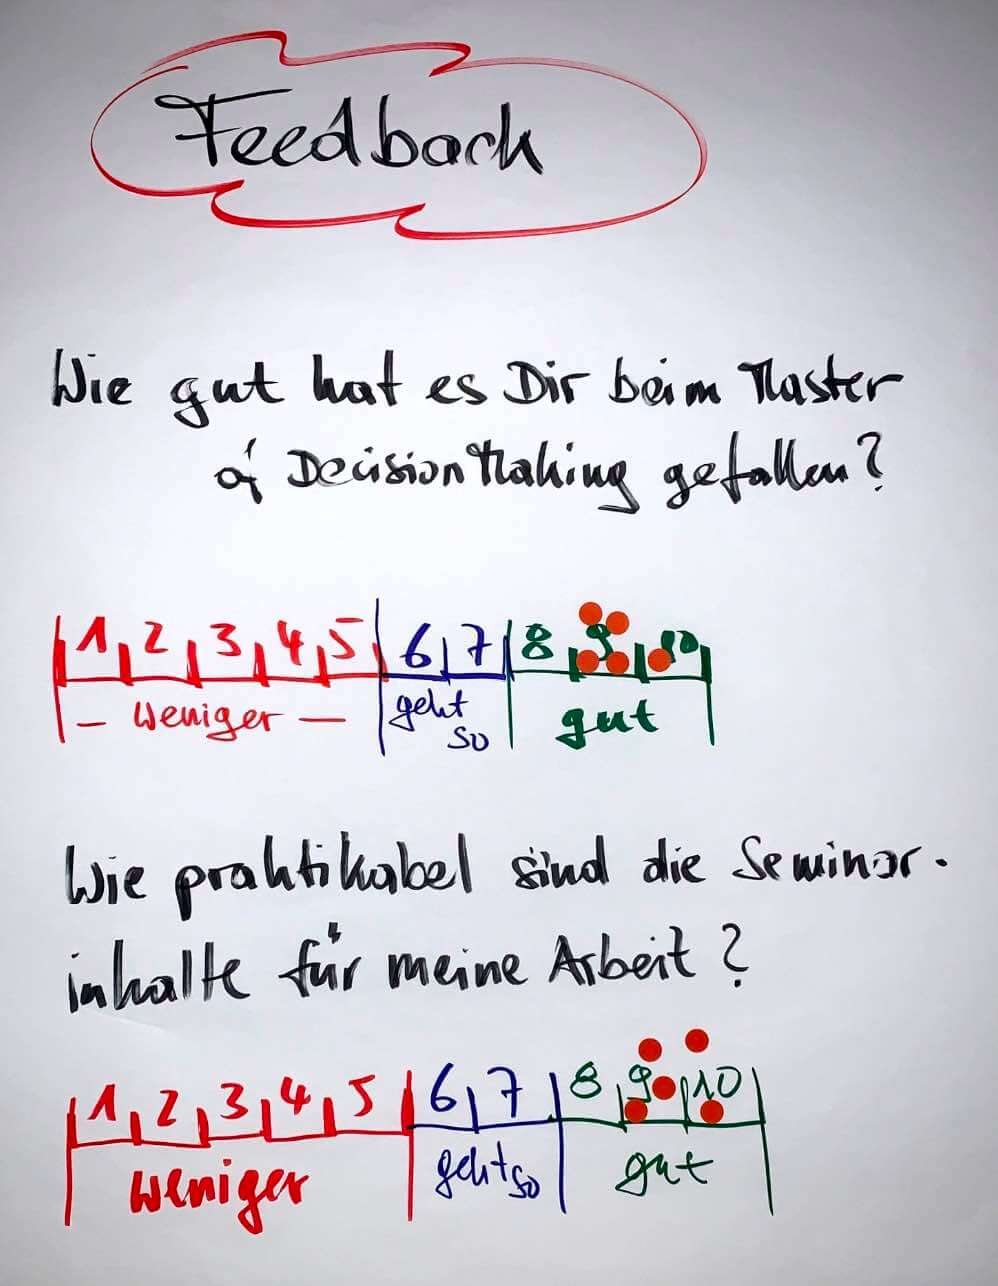 Feedback
Wie gut hat es Dir beim Master
of Decision Making gefallen?
1 2 3 4 5 6 7 8 9 10
- weniger - geht so gut
Wie praktikabel sind die Seminar-
inhalte für meine Arbeit?
1 2 3 4 5 6 7 8 9 10
weniger geht so gut